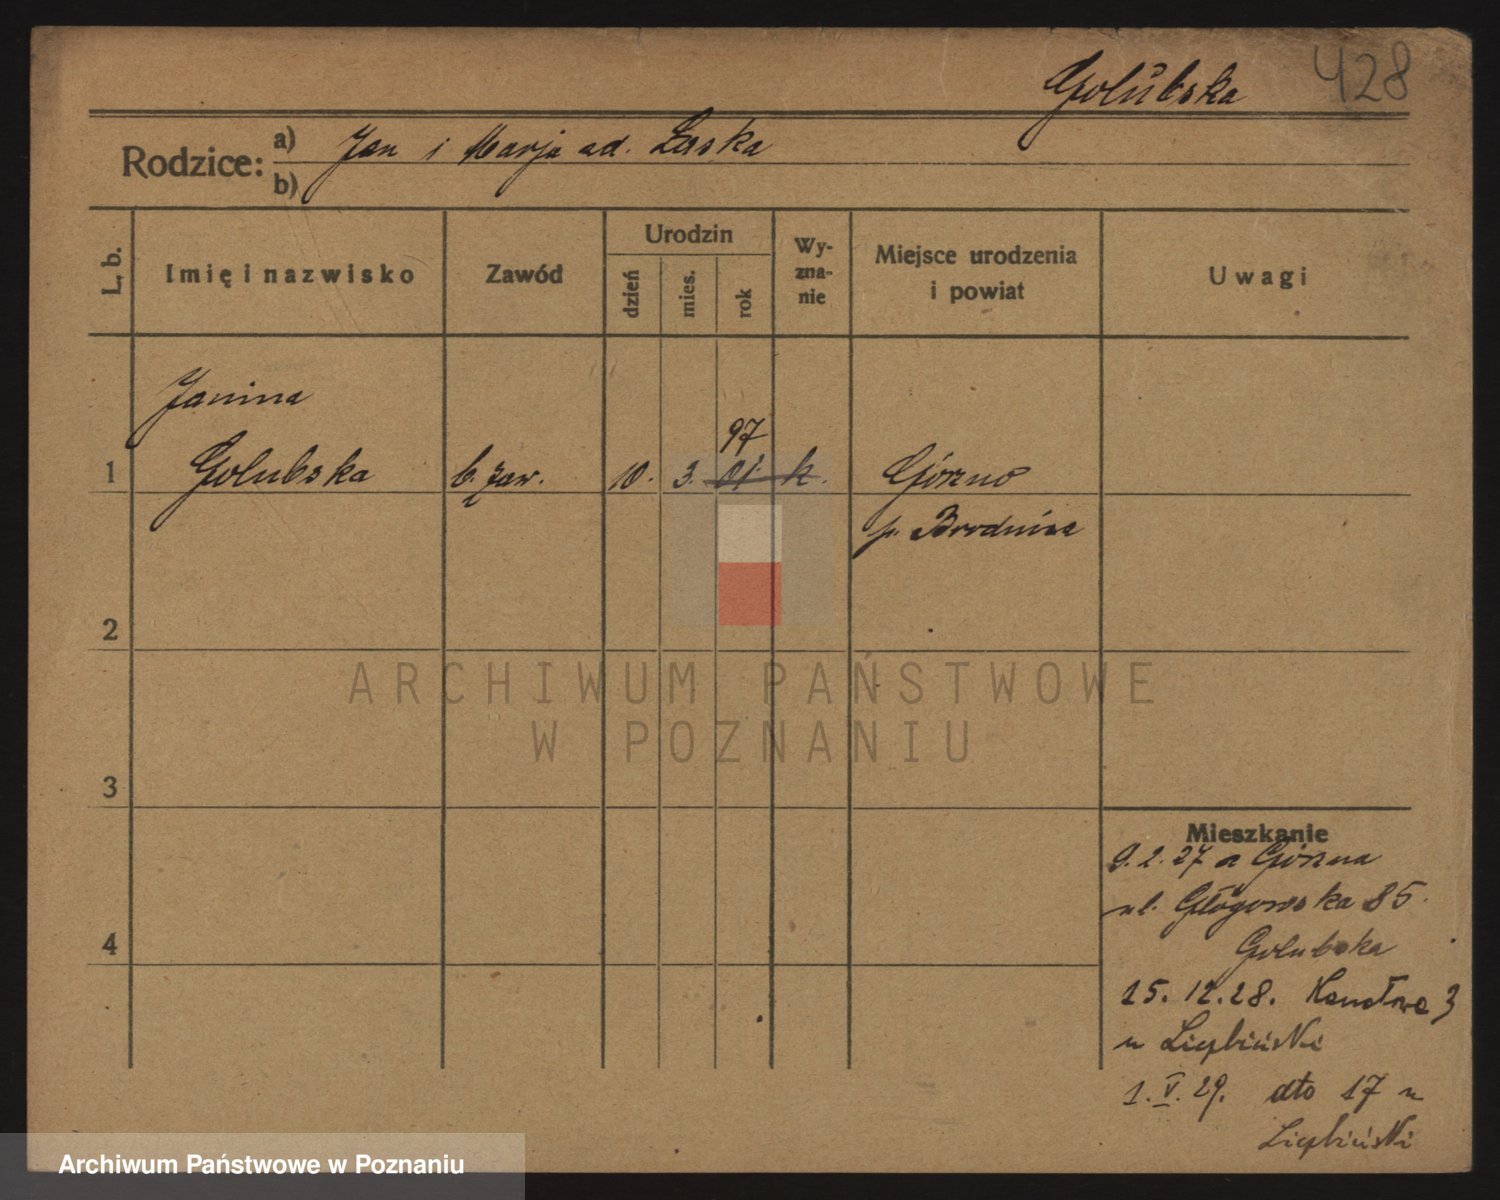 428
Golubska
Rodzice: a) Jan i Marja ad. Laska
b)
L. b.
Imię i nazwisko
Zawód
Urodzin
dzień
mies.
rok
Wy-
zna-
nie
Miejsce urodzenia
i powiat
Uwagi
Janina
97
1 Golubska b. zaw. 10. 3. 01. k. Górzno
p. Brodnica
2
ARCHIWUM PAŃSTWOWE
W POZNANIU
3
Mieszkanie
9.2.27 z Górzna
ul. Głogowska 85.
4
Golubska
15. 12. 28. 3
u
1. V. 29. dto 17 u
Archiwum Państwowe w Poznaniu